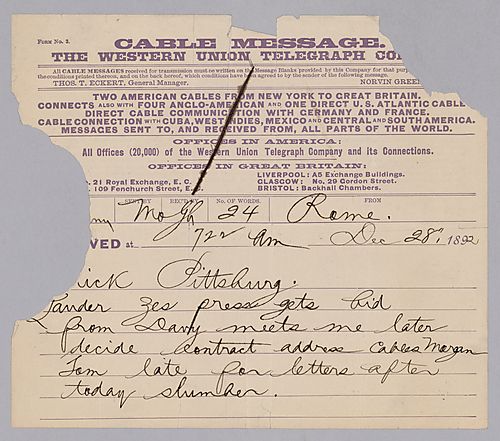 Form No. 2.
CABLE MESSAGE.
THE WESTERN UNION TELEGRAPH CO
All CABLE MESSAGES received for transmission must be written on the Message Blanks provided by this Company for that purp
the conditions printed thereon, and on the back hereof, which conditions have been agreed to by the sender of the following message.
THOS. T. ECKERT, General Manager. NORVIN GREE
TWO AMERICAN CABLES FROM NEW YORK TO GREAT BRITAIN.
CONNECTS ALSO WITH FOUR ANGLO-AMERICAN AND ONE DIRECT U.S. ATLANTIC CABLE
DIRECT CABLE COMMUNICATION WITH GERMANY AND FRANCE.
CABLE CONNECTION WITH CUBA, WEST INDIES, MEXICO AND CENTRAL AND SOUTH AMERICA.
MESSAGES SENT TO, AND RECEIVED FROM, ALL PARTS OF THE WORLD.
OFFICES IN AMERICA:
All Offices (20,000) of the Western Union Telegraph Company and its Connections.
OFFICES IN GREAT BRITAIN:
o. 21 Royal Exchange, E. C. LIVERPOOL: A5 Exchange Buildings.
109 Fenchurch Street, E. C. GLASGOW: No. 29 Gordon Street.
BRISTOL: Backhall Chambers.
SENT BY REC'D BY No. OF WORDS. FROM
Mo 24 Rome.
VED at 722 am Dec 28, 1892
ick Pittsburg.
Lauder zes press gets bid
from Davy meets me later
decide contract address Cables Morgan
Tom late for letters after
today slumber.